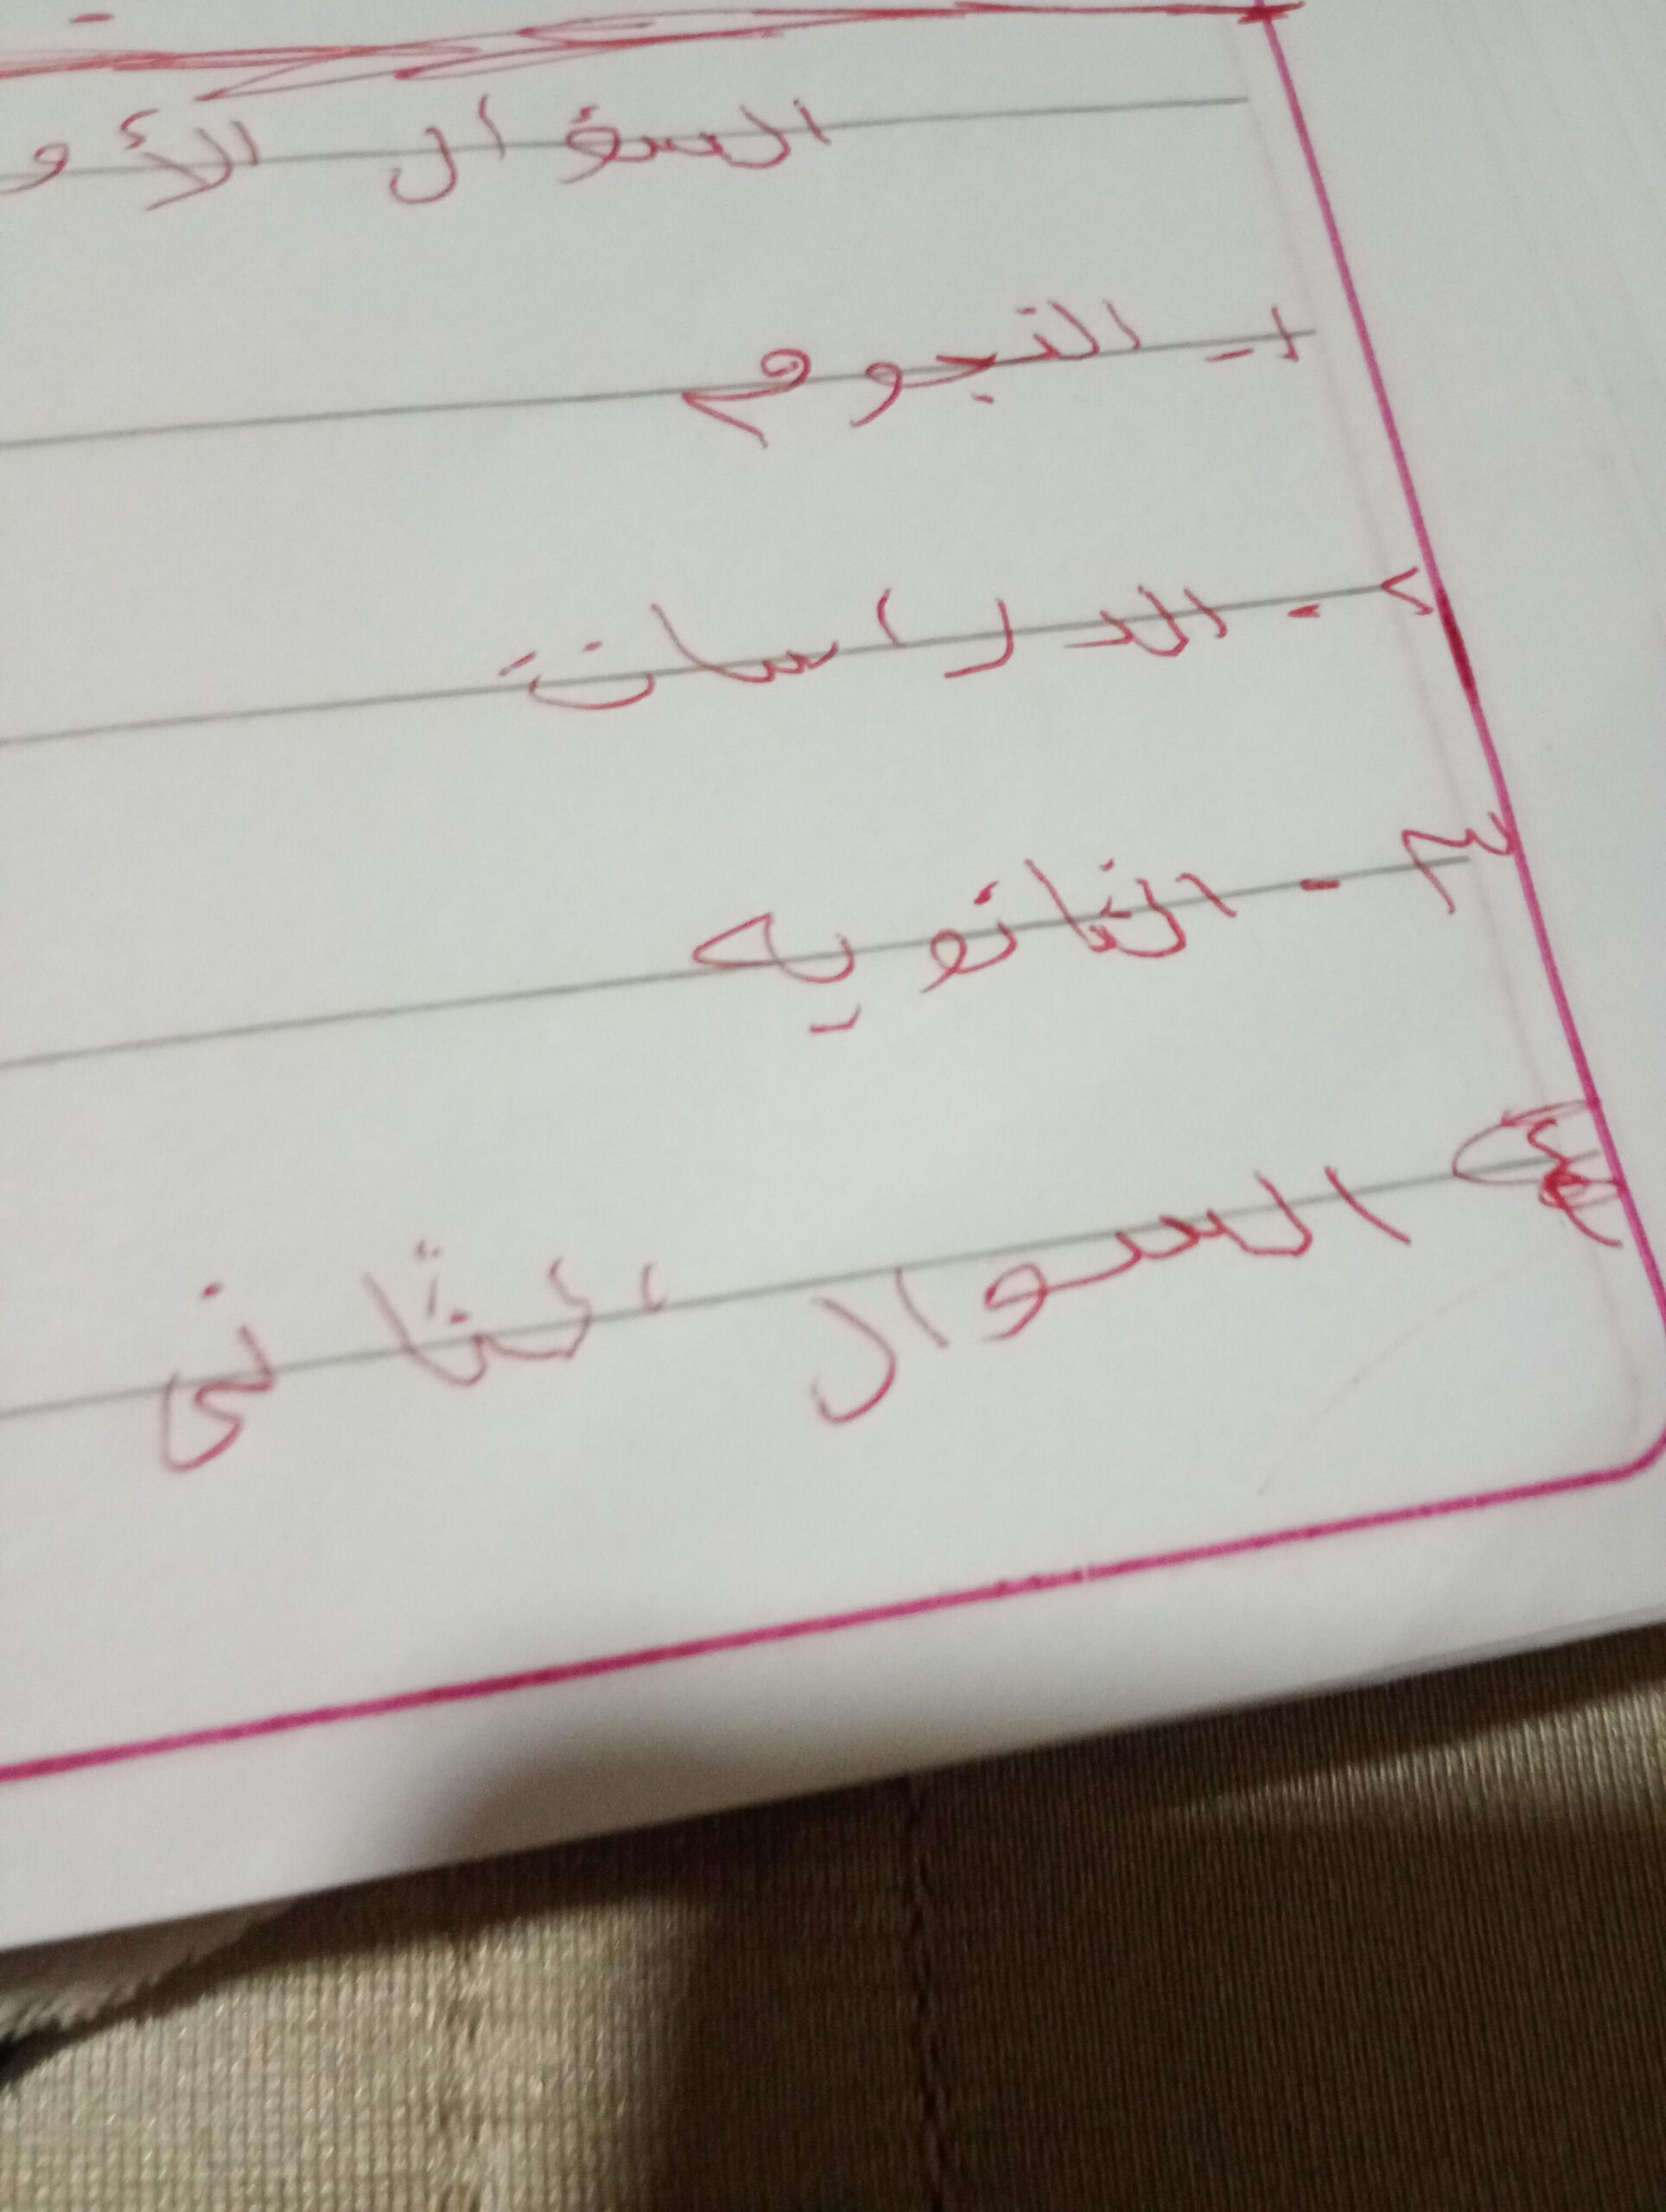 السؤال الأو
١- النجوم
٢- الدراسات
٣- الثانويه
السوال الثاني